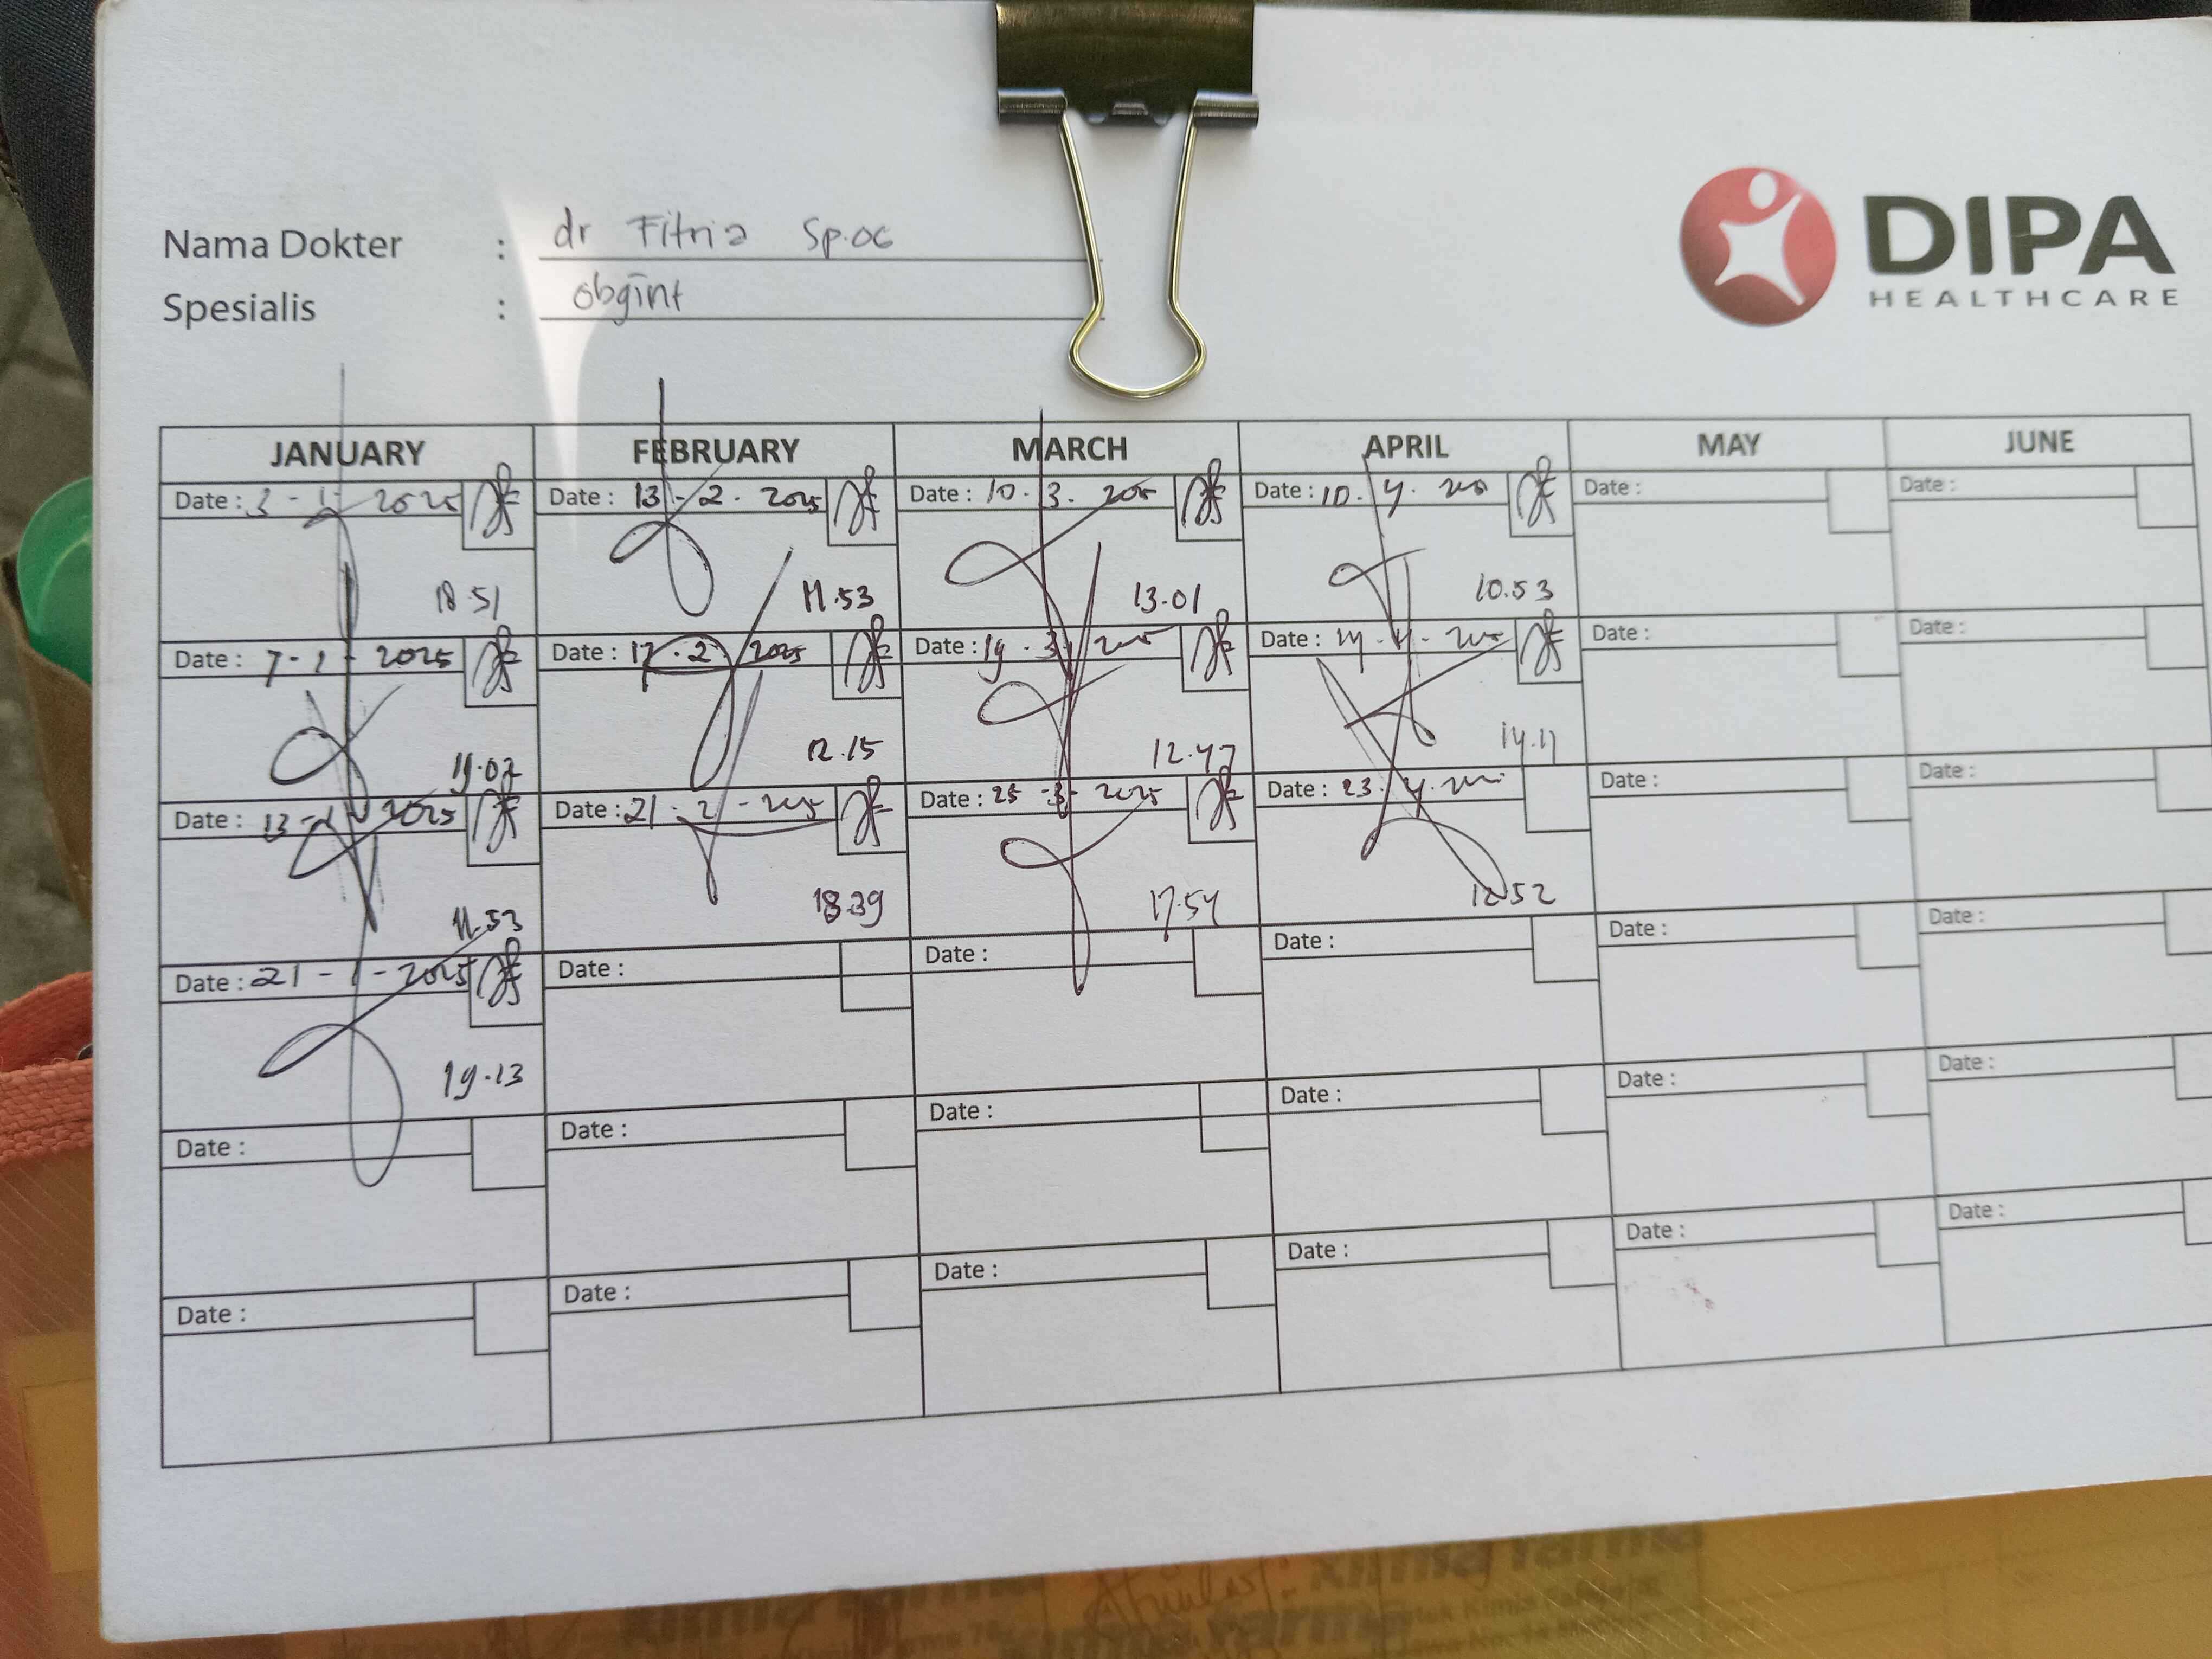 Nama Dokter : dr Fitria Sp.OG
Spesialis : obgint
DIPA
HEALTHCARE
JANUARY FEBRUARY MARCH APRIL MAY JUNE
Date : 3 - 1 - 2025 Date : 13 - 2 . 2025 Date : 10 . 3 . Date : 10 . 4 . Date : Date :
18.51 11.53 13.01 10.53
Date : 7 - 1 - 2025 Date : 17 . 2 . 2025 Date : 19 . 3 . Date : 14 . 4 - Date : Date :
19.07 12.15 12.47 14.11
Date : 13 - 1 - 2025 Date : 21 . 2 - Date : 25 - 3 - 2025 Date : 23 . 4 . Date : Date :
11.53 18.39 17.54 12.52
Date : 21 - 1 - 2025 Date : Date : Date : Date : Date :
19.13
Date : Date : Date : Date : Date : Date :
Date : Date : Date : Date : Date : Date :